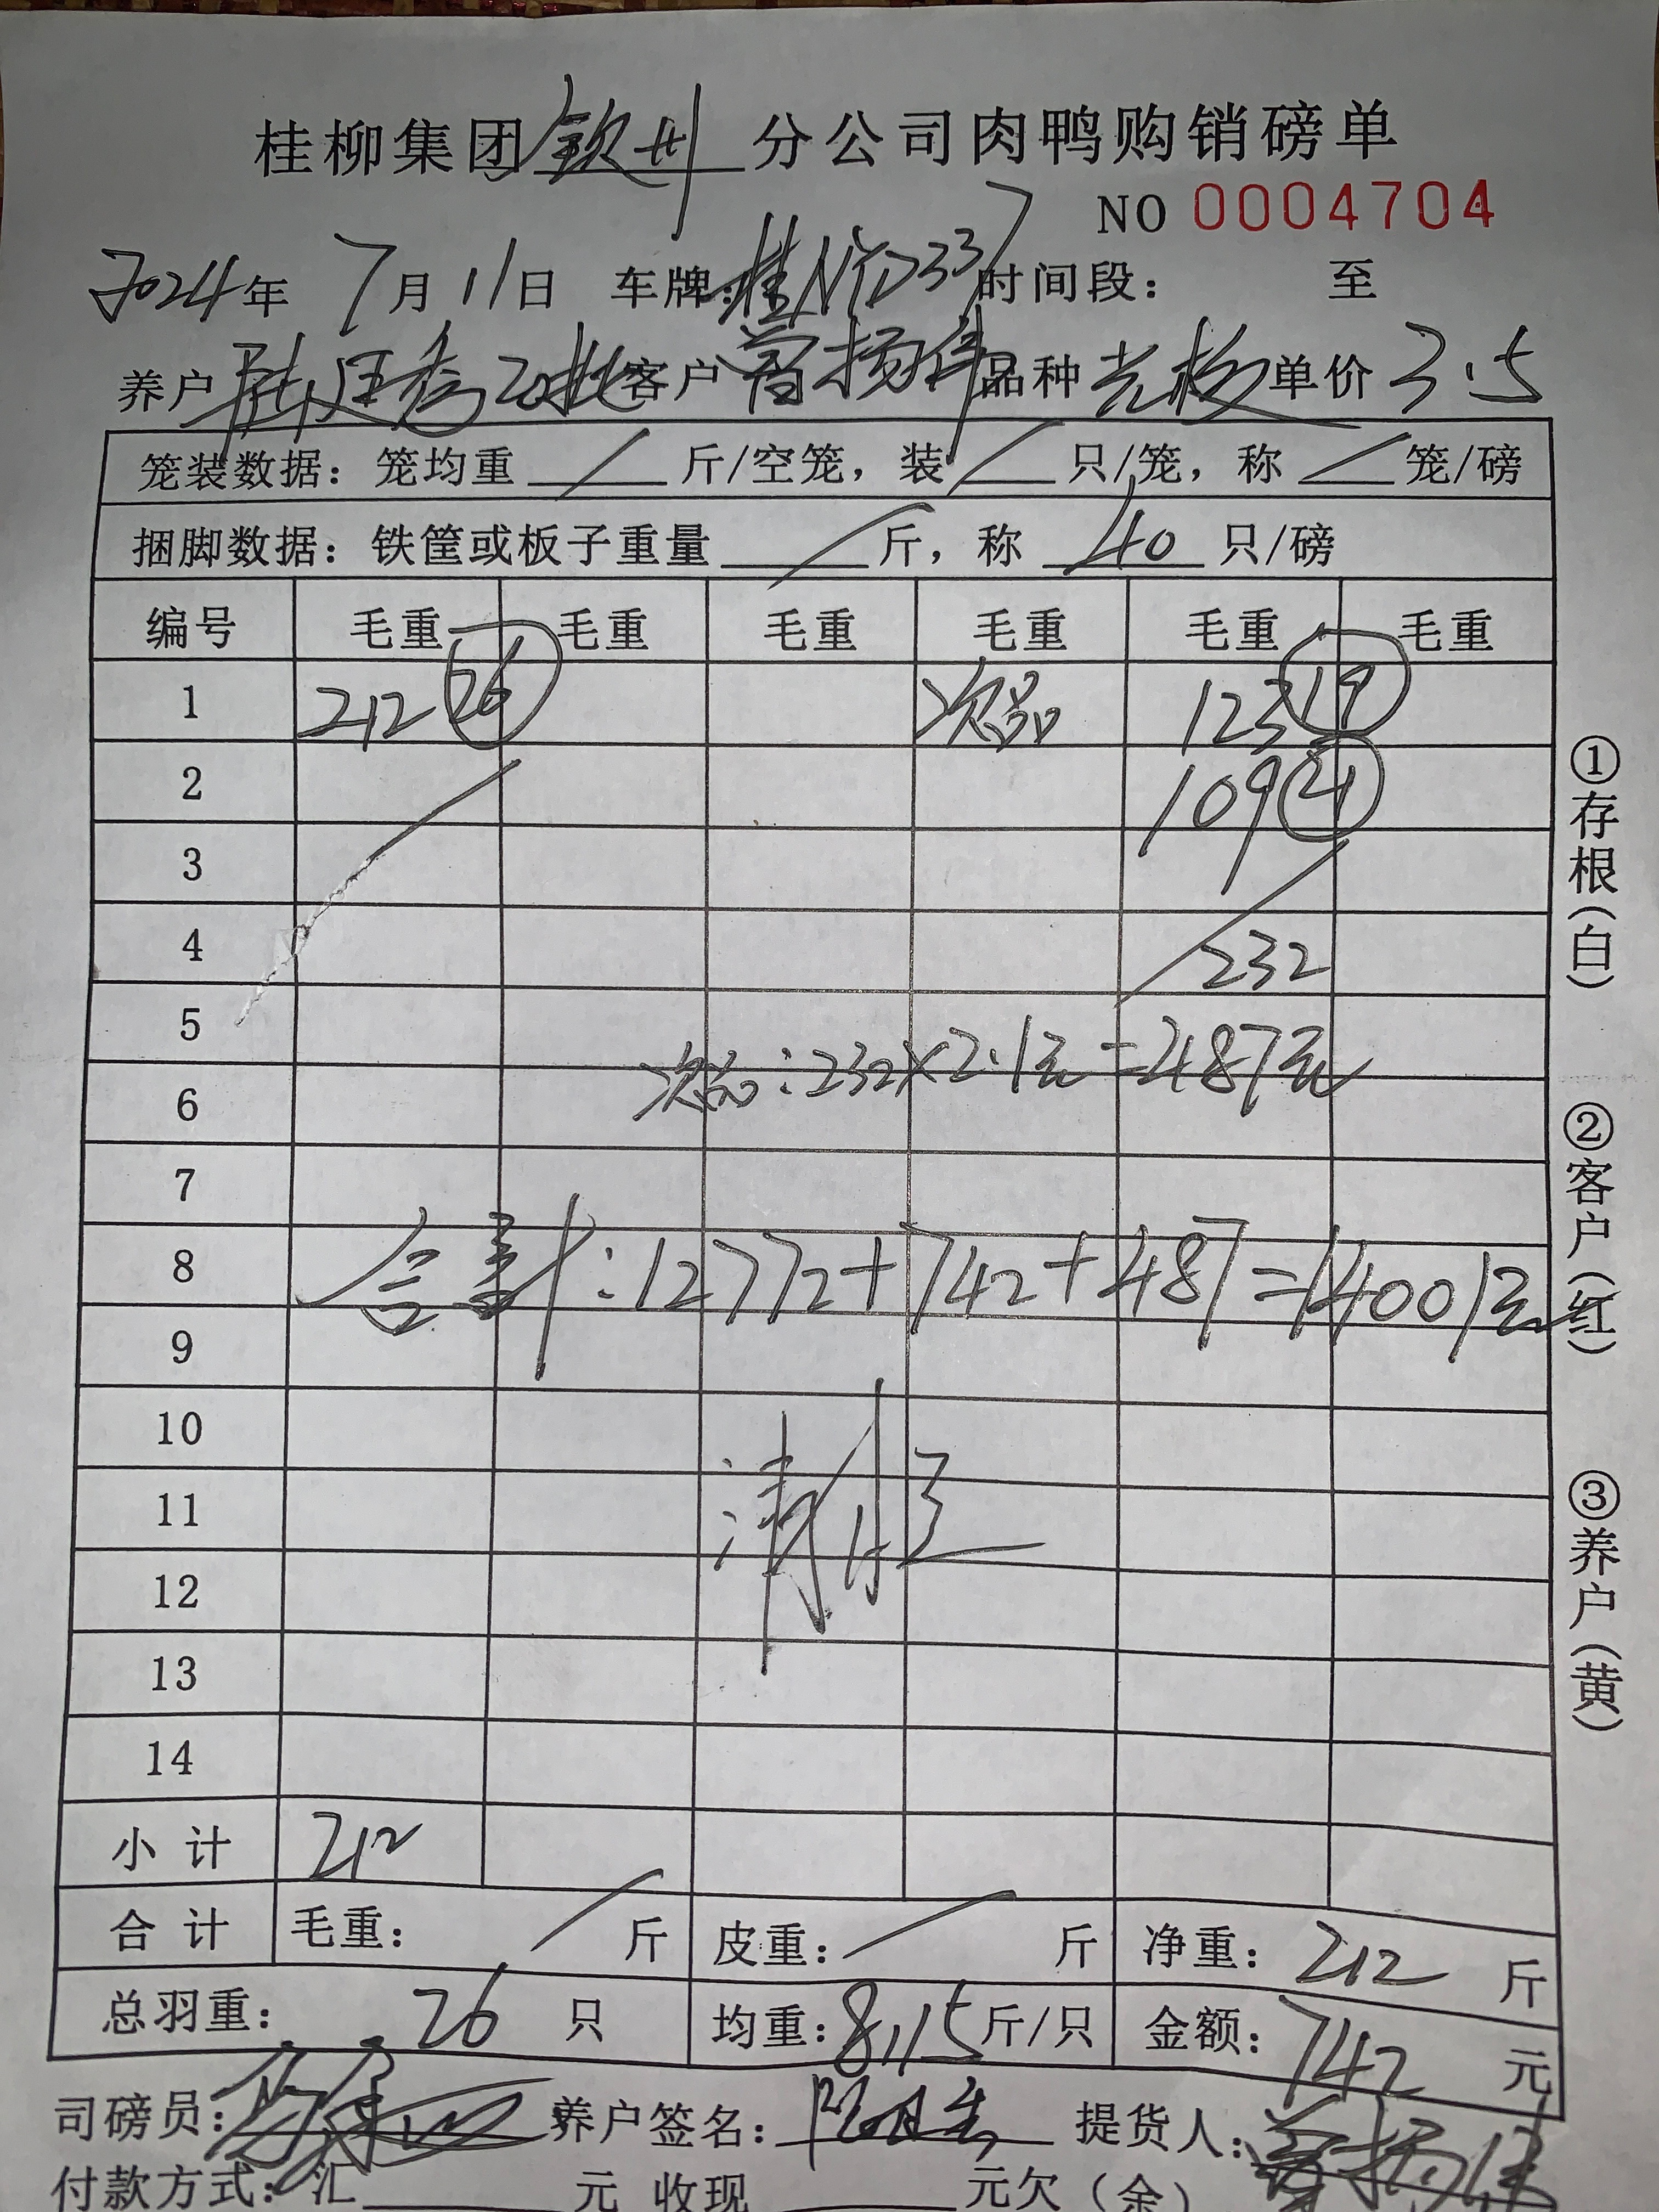 桂柳集团钦州分公司肉鸭购销磅单
NO 0004704
2024年 7月11日 车牌:桂NYD337 时间段: 至
养户 20批 客户 曾扬伟 品种 单价 3.5
笼装数据: 笼均重 / 斤/空笼, 装 / 只/笼, 称 / 笼/磅
捆脚数据: 铁筐或板子重量 / 斤, 称 40 只/磅
编号 毛重 毛重 毛重 毛重 毛重 毛重
1 212 26 次品 123 19
2 109 21
3
4 232
5
次品:232×2.1元=487元
6
7
8 合计:12772+742+487=14001元
9
10
清
11
12
13
14
小计 212
合计 毛重: / 斤 皮重: / 斤 净重: 212 斤
总羽重: 26 只 均重: 8.15 斤/只 金额: 742 元
司磅员: 养户签名: 提货人: 曾扬伟
付款方式: 汇 元 收现 元欠(余)
①存根(白)
②客户(红)
③养户(黄)